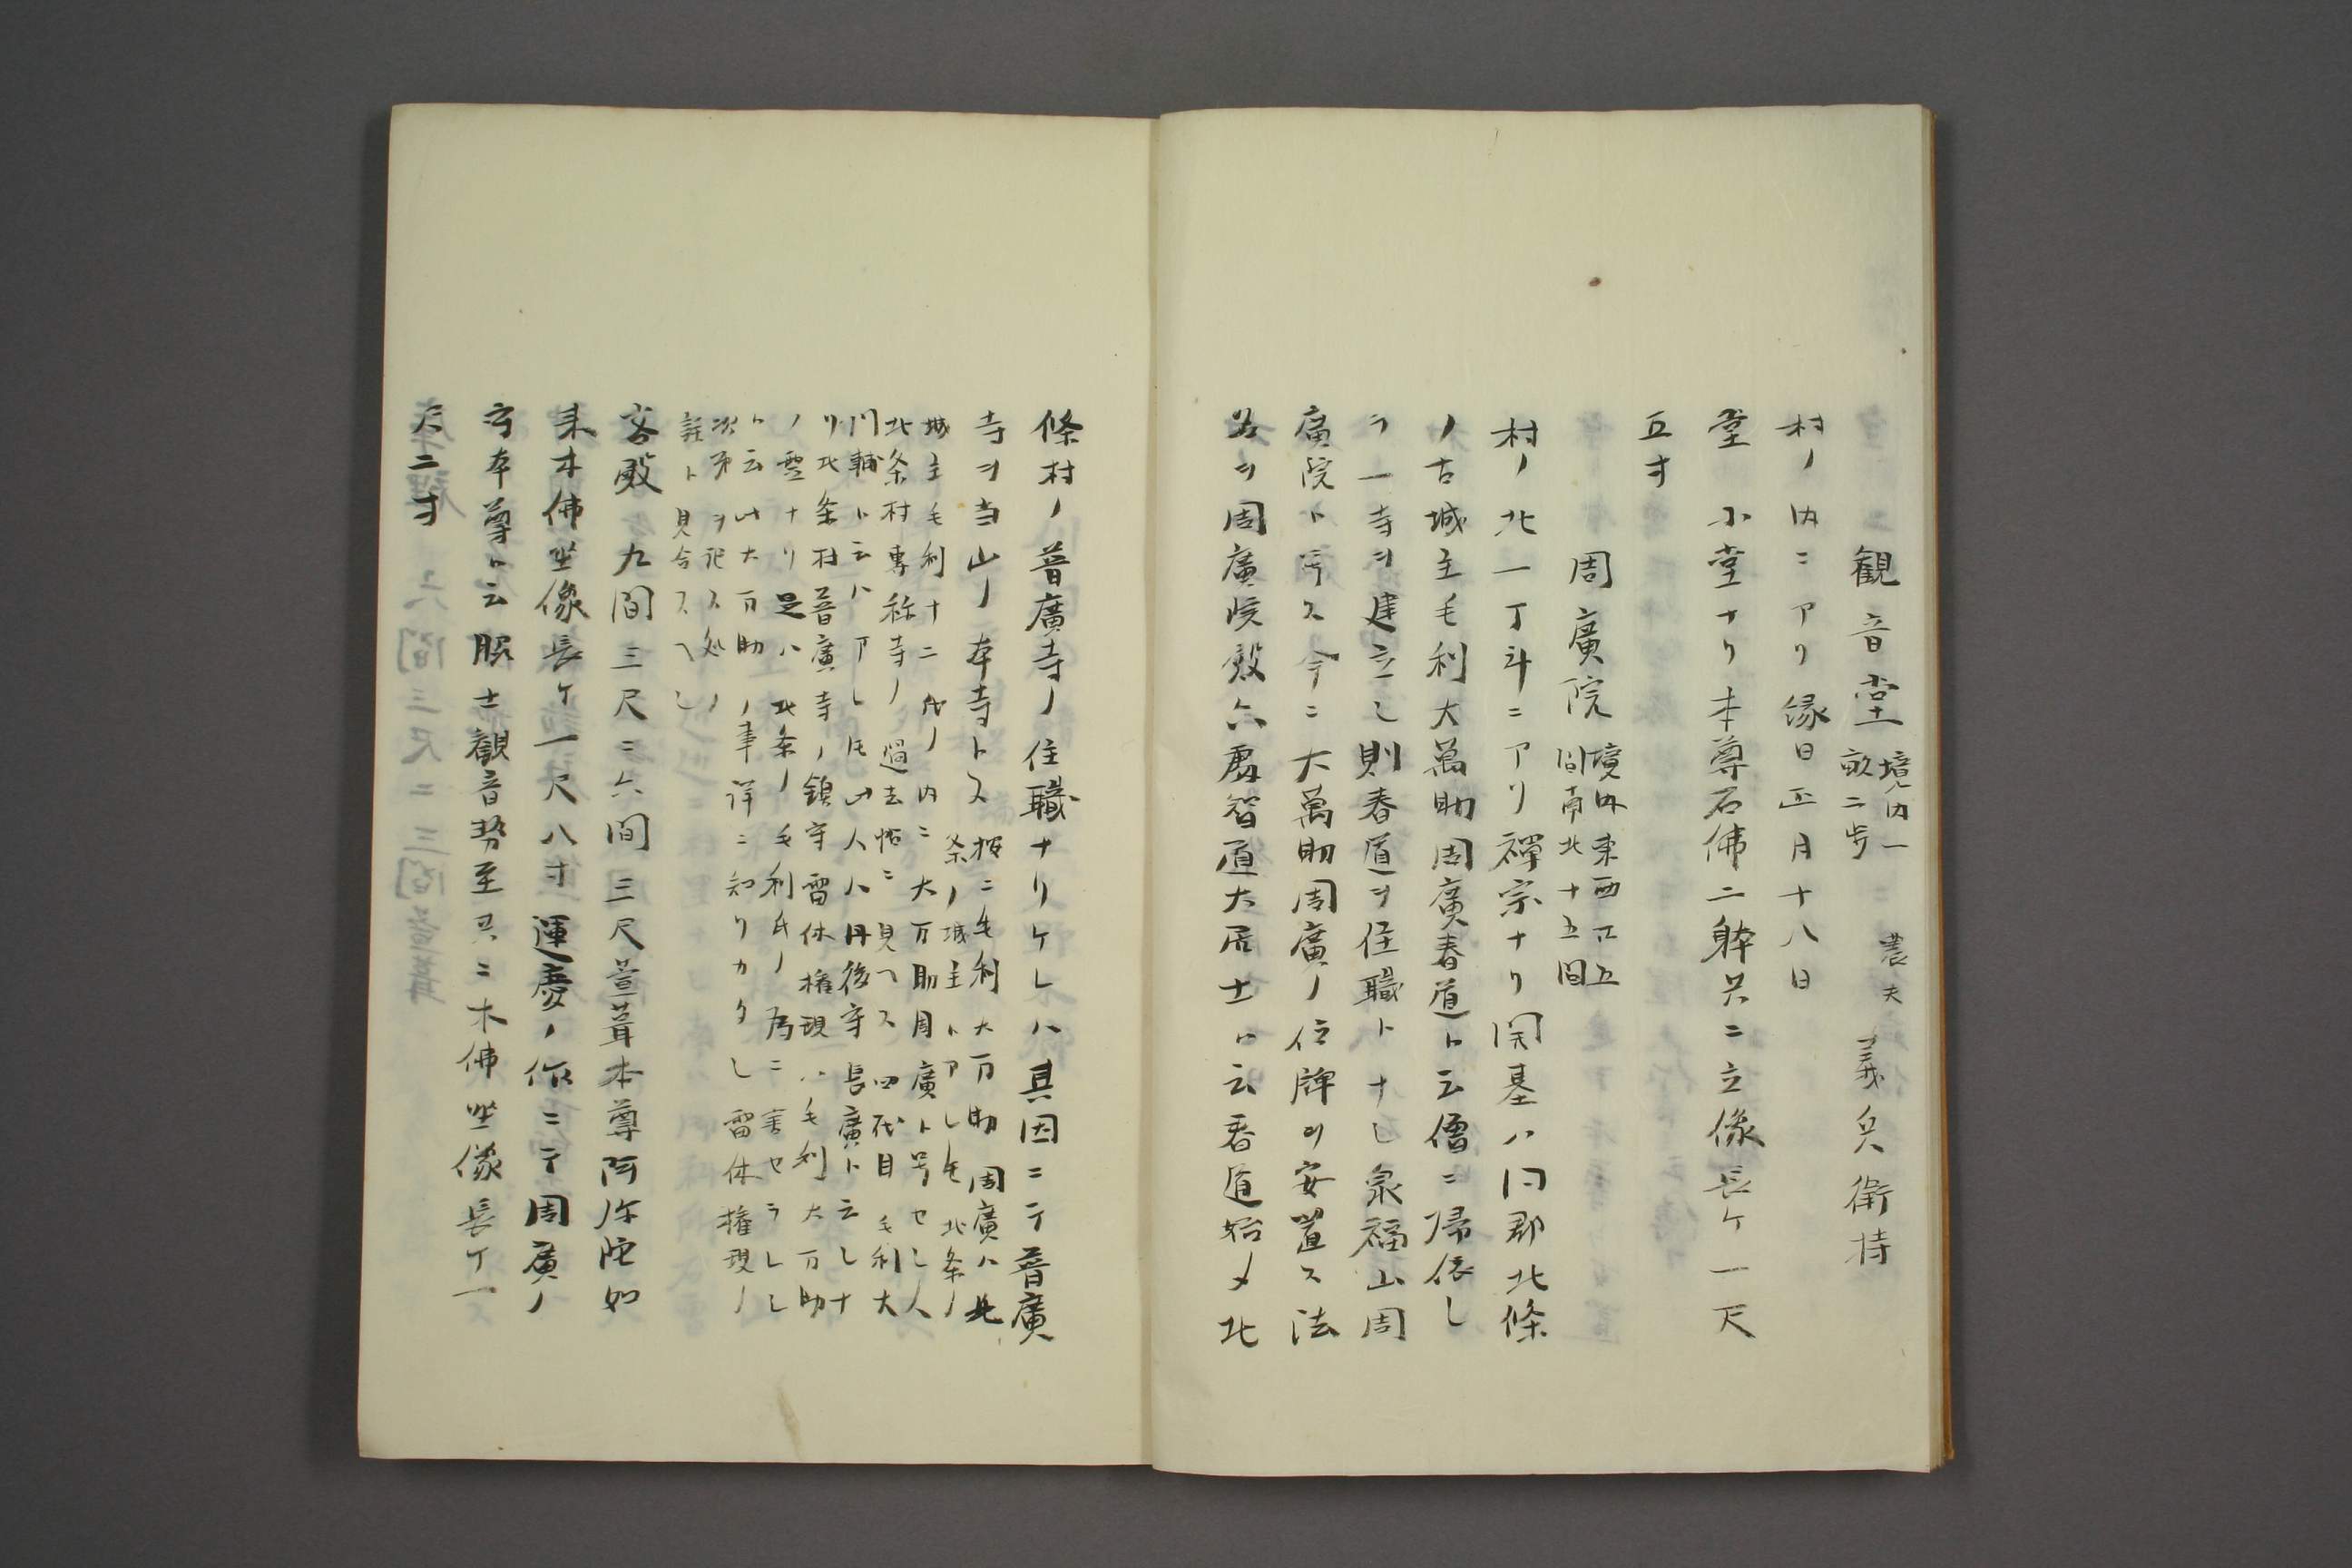 観音堂 境内一畝二歩 農夫 義兵衛持
村ノ内ニアリ縁日正月十八日
堂 小堂ナリ本尊石佛二躰共ニ立像長ケ一尺
五寸
周廣院 境内東西 間南北十五間
村ノ北一丁斗ニアリ禅宗ナリ開基ハ同郡北條
ノ古城主毛利大萬助周廣春道ト云僧ニ帰依し
テ一寺ヲ建立し則春道ヲ住職トナし泉福山周
廣院ト号ス今ニ大萬助周廣ノ位牌ヲ安置ス法
名ヲ周廣院殿 智道大居士ト云春道始メ北
條村ノ普廣寺ノ住職ナリケレハ其因ニテ普廣
寺ヲ当山ノ本寺トス 按ニ毛利大万助周廣ハ北
条ノ城主トアレ 北条ノ
城主毛利十二代ノ内ニ大万助周廣ト号セし人
北条村専称寺ノ過去帖ニ見ヘス四代目毛利大
川輔ト云ハアレ 此人ハ丹後守長廣ト云しナ
リ北条村普廣寺ノ鎮守雷休権現ハ毛利大万助
ノ霊ナリ是ハ北条ノ毛利氏ノ為ニ害セラレし
ト云此大万助ノ事詳ニ知リカタし雷休権現ノ
次第ヲ記ス処ノ
註ト見合スヘし
客殿 九間三尺ニ六間三尺萱葺本尊阿弥陀如
来木佛坐像長ケ一尺八寸運慶ノ作ニテ周廣ノ
守本尊ト云脇士観音勢至共ニ木佛坐像長ケ一
尺二寸